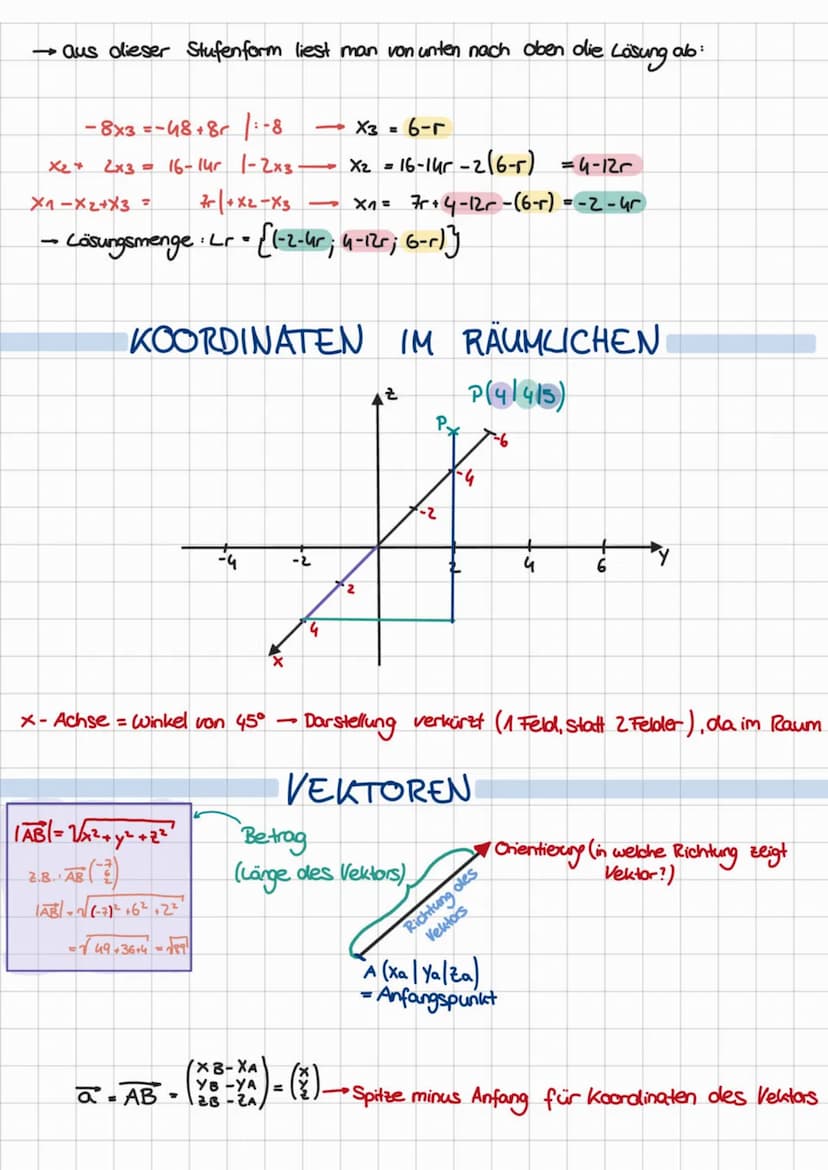 → aus dieser Stufenform liest man von unten nach oben die Lösung ab:
-8x3 = -48 + 8r |: -8 → x3 = 6-r
x2 + 2x3 = 16-14r |-2x3 → x2 = 16-14r -2(6-r) = 4-12r
x1 - x2 + x3 = 7r | + x2 - x3 → x1 = 7r + 4-12r - (6-r) = -2-4r
→ Lösungsmenge: Lr = {(-2-4r; 4-12r; 6-r)}
KOORDINATEN IM RÄUMLICHEN
z P(4|4|5)
P
-6
-4
-2
-4 -2 2 4 6 y
2
4
x
x-Achse = Winkel von 45° → Darstellung verkürzt (1 Feld, statt 2 Felder), da im Raum
VEKTOREN
|AB| = √x²+y²+z²
z.B.: AB (-7 6 2)
|AB| = √(-7)²+6²+2²
= √49+36+4 = √89
Betrag
(Länge des Vektors)
Orientierung (in welche Richtung zeigt
Vektor?)
Richtung des
Vektors
A (xa | ya | za)
= Anfangspunkt
a = AB = (xB-xA yB-yA zB-zA) = (x y z) → Spitze minus Anfang für Koordinaten des Vektors